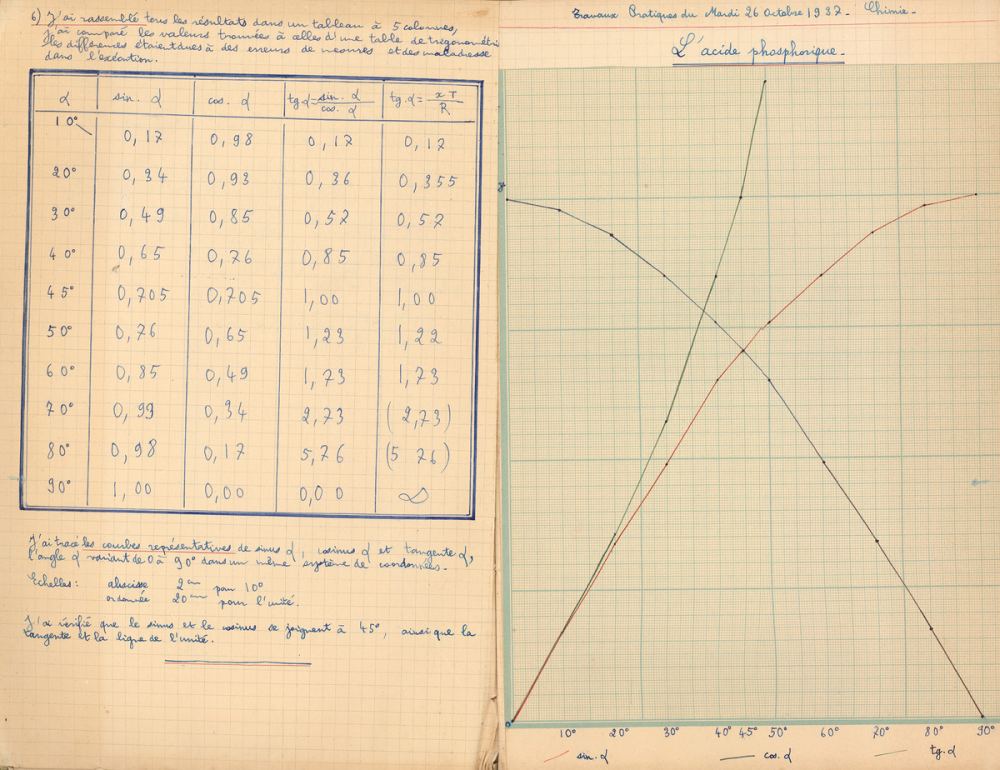 6) J'ai rassemblé tous les résultats dans un tableau à 5 colonnes,
j'ai comparé les valeurs trouvées à celles d'une table de trigonométrie
les différences étaient dues à des erreurs de mesures et des maladresse
dans l'exécution.
α sin. α cos. α tg.α = sin. α / cos. α tg.α = xT / R
10° 0,17 0,98 0,17 0,17
20° 0,34 0,93 0,36 0,355
30° 0,49 0,85 0,57 0,57
40° 0,65 0,76 0,85 0,85
45° 0,705 0,705 1,00 1,00
50° 0,76 0,65 1,23 1,22
60° 0,85 0,49 1,73 1,73
70° 0,93 0,34 2,73 (2,73)
80° 0,98 0,17 5,76 (5 76)
90° 1,00 0,00 0,00 ∞
J'ai tracé les courbes représentatives de sinus α, cosinus α et tangente α,
l'angle α variant de 0 à 90° dans un même système de coordonnées.
Echelles: abscisse 2cm pour 10°
ordonnée 20cm pour l'unité.
J'ai vérifié que le sinus et le cosinus se joignent à 45°, ainsi que la
tangente et la ligne de l'unité.
Travaux Pratiques du Mardi 26 Octobre 1937. Chimie.
L'acide phosphorique.
y
0
10° 20° 30° 40° 45° 50° 60° 70° 80° 90°
sin. α cos. α tg. α